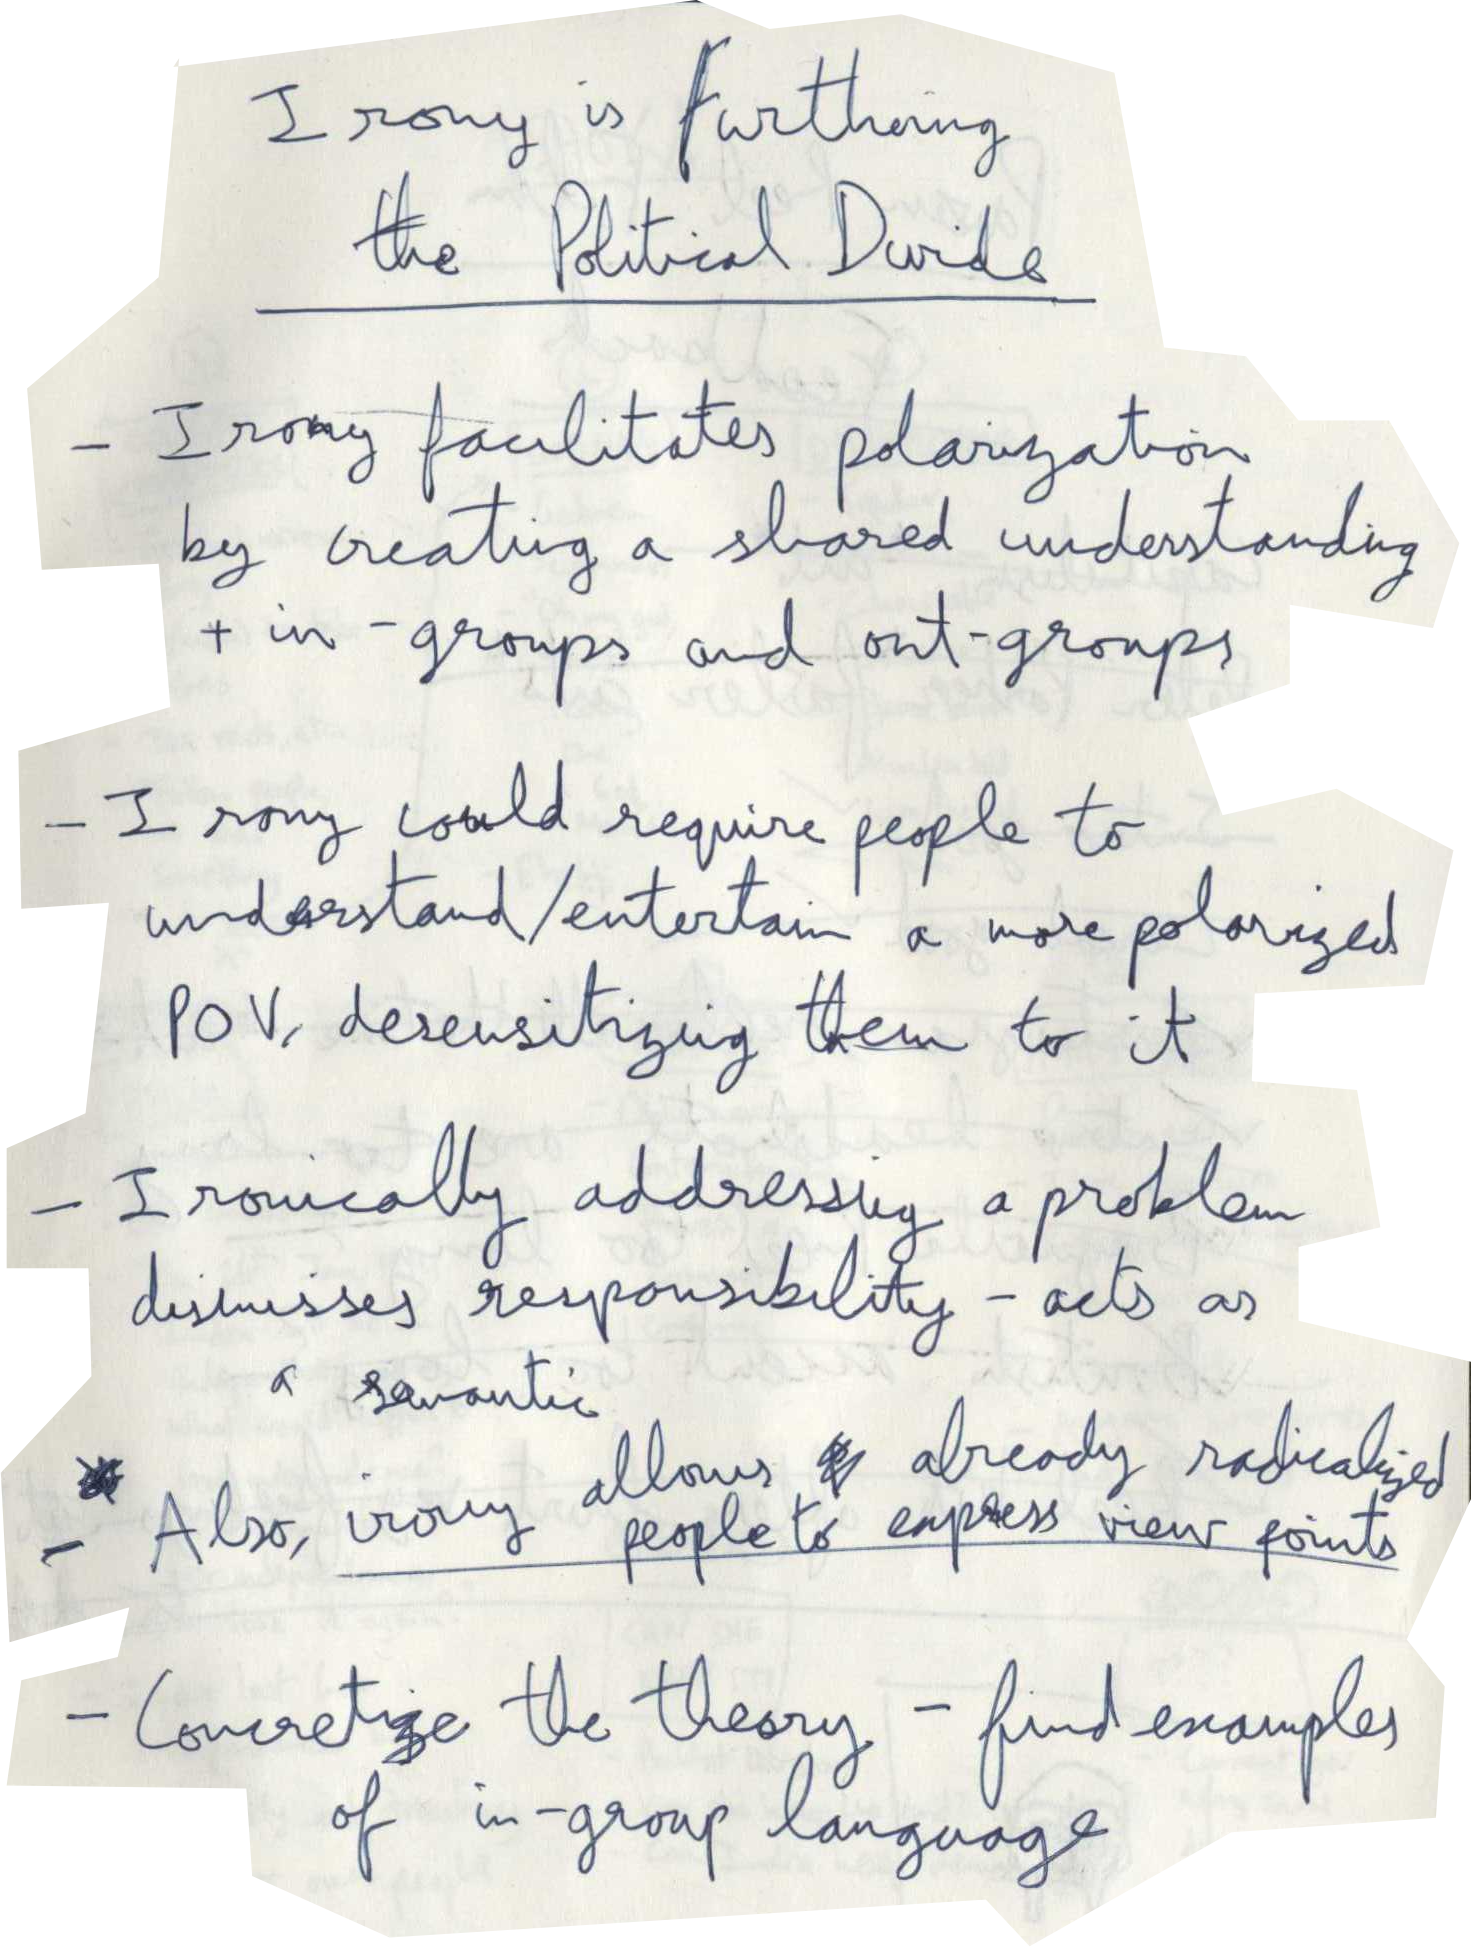 Irony is furthering
the Political Divide
- Irony facilitates polarization
by creating a shared understanding
+ in-groups and out-groups
- Irony could require people to
understand/entertain a more polarized
POV, desensitizing them to it
- Ironically addressing a problem
dismisses responsibility - acts as
a semantic
- Also, irony allows already radicalized
people to express view points
- Concretize the theory - find examples
of in-group language